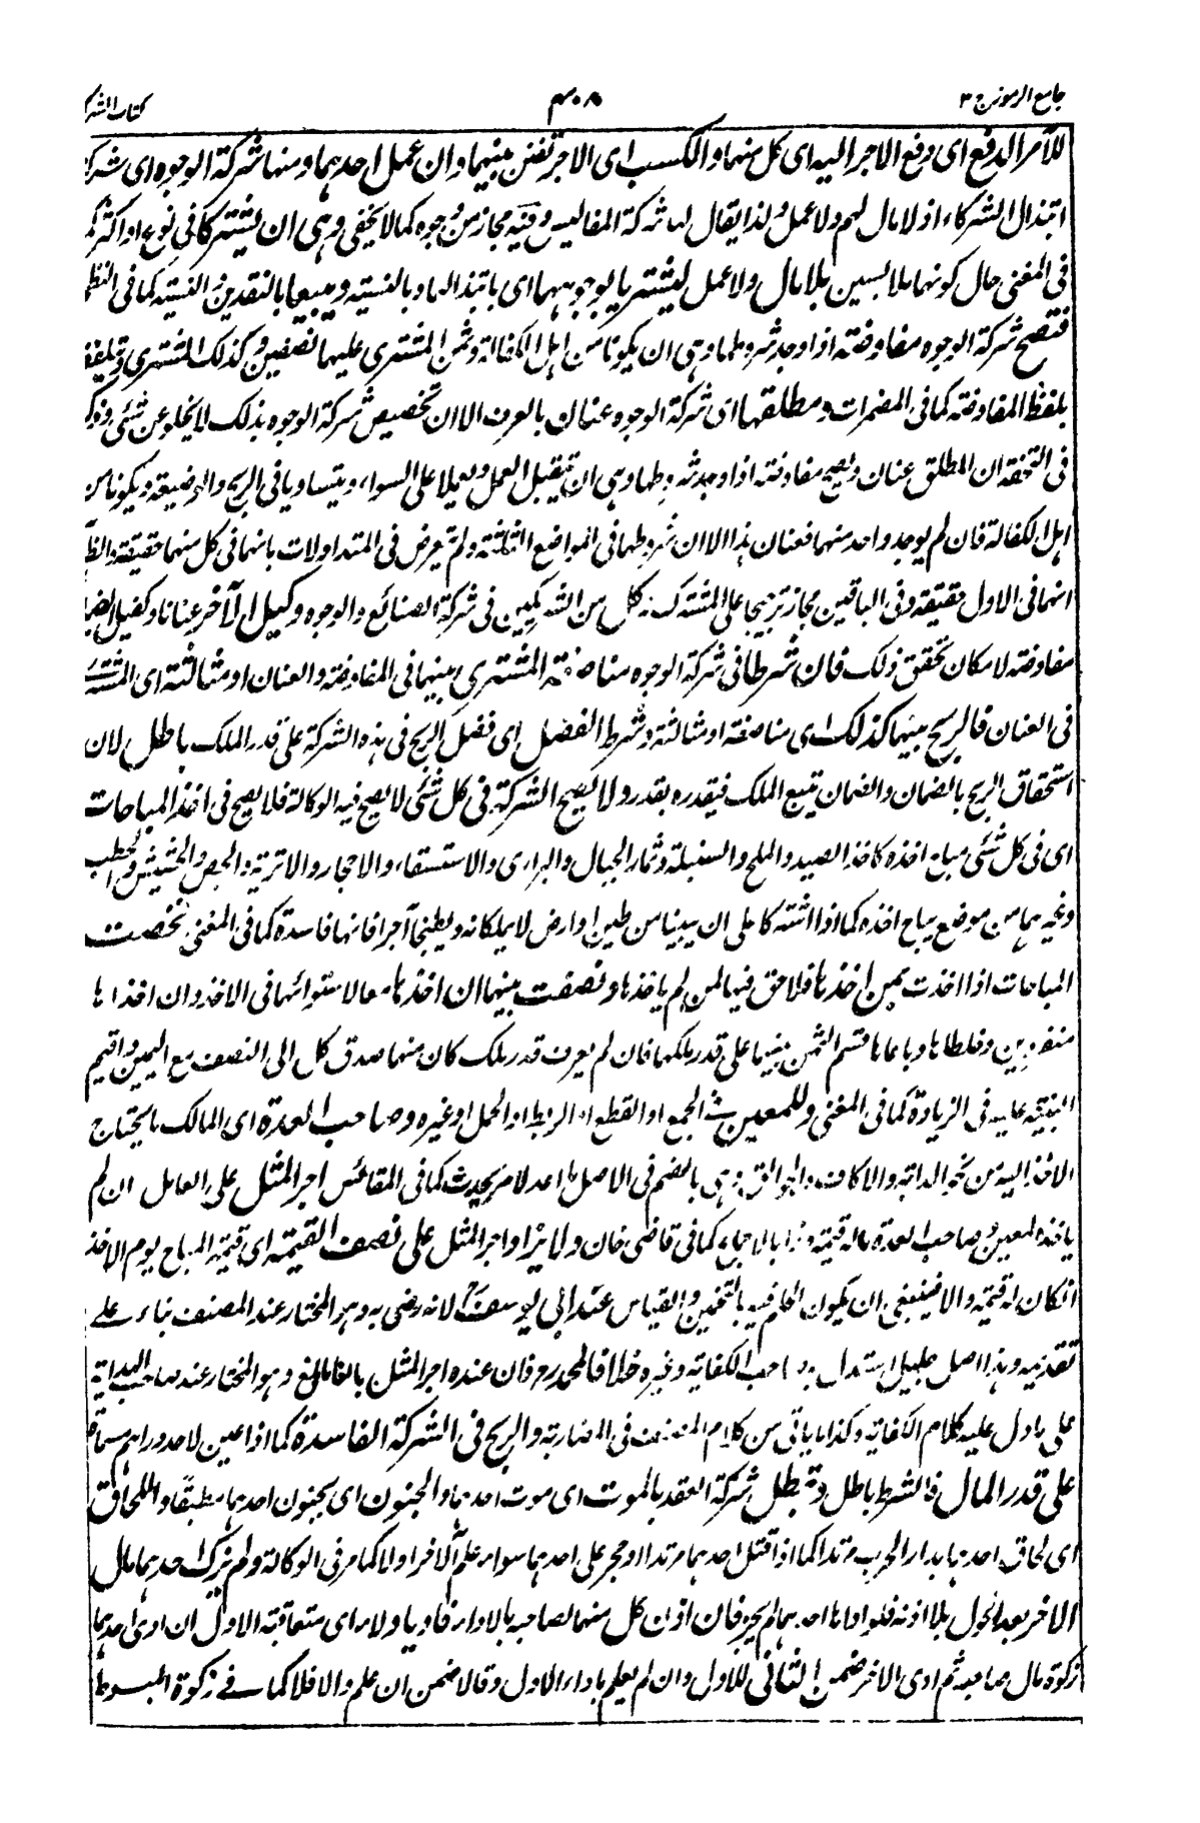 جامع الرموز ج ٣
٣٠٨
كتاب الشر
للآمر الدفع اى دفع الاجر اليه اى كل منهما والكسب اى الاجر بينهما وان عمل احدهما ومنها شركة الوجوه اى شرك
ابتذال الشركاء اذ لا مال لهم ولا عمل ولذا يقال لها شركة المفاليس وفيه مجاز من وجوه كما لا يخفى وهى ان يشتركا فى نوع او اكثر
فى المغنى حال كونهما ملابسين بلا مال ولا عمل ليشتريا بوجوههما اى بابتذالهما وبالنسيئة ويبيعا بالنقد من النسيئة كما فى النظم
فتصح شركة الوجوه مفاوضة اذا وجد شروطها وهى ان يكونا من اهل الكفالة وثمن المشترى عليهما نصفين وكذلك المشترى
بلفظ المفاوضة كما فى المضمرات ومطلقها اى شركة الوجوه عنان بالعرف الا ان تخصيص شركة الوجوه بذلك لا يخلو عن شئى وذكر
فى التحفة ان المطلق عنان ويصح مفاوضة اذا وجد شروطها وهى ان يتقبل العمل ويعملا على السواء ويتساويا فى الربح والوضيعة ويكونا من
اهل الكفالة فان لم يوجد واحد منهما فعنان هذا الا ان شروطها فى المواضع الثلثة ولم يعرض فى المتداولات بانهما فى كل منهما حقيقة
انهما فى الاول حقيقة وفى الباقين مجاز ترجيحا على المشترك وكل من الشريكين فى شركة الصنائع والوجوه وكيل الآخر عنانا وكفيل ايضا
مفاوضة لامكان تحقق ذلك فان شرطا فى شركة الوجوه مناصفة المشترى بينهما فى المفاوضة والعنان او مثالثته اى المشترى
فى العنان فالربح بينهما كذلك اى مناصفة او مثالثة وشرط الفضل اى فضل الربح فى هذه الشركة على قدر الملك باطل لان
استحقاق الربح بالضمان والضمان تتبع الملك فيقدره بقدره ولا يصح الشركة فى كل شئى لا يصح فيه الوكالة فلا يصح فى اخذ المباحات
اى فى كل شئى مباح اخذه كاخذ الصيد والملح والسنبلة وثمار الجبال والبرارى والاستسقاء والاحجار والاتربة والجص والحشيش والحطب
وغيرها من موضع يباح اخذه كما اذا اشتركا على ان يبنيا من طين او ارض لا يملكانه ويطبخا آجرا فانها فاسدة كما فى المغنى نخصت
المباحات اذا اخذت بمن اخذها فلا حق فيها لمن لم ياخذها ونصفت بينهما ان اخذها معا لاستوائهما فى الاخذ وان اخذاها
منفردين وخلطاها وباعاها قسم الثمن بينهما على قدر ملكهما فان لم يعرف قدر ملك كان منهما صدق كل الى النصف مع اليمين واقيم
البينة عليه فى الزيادة كما فى المغنى وللمعين فى الجمع او القطع او الربط او الحمل او غيره وصاحب العدة اى المالك ما يحتاج
الاخذ اليه من نحو الدابة والاكاف والجوالق وهى بالضم فى الاصل ما اعد لامر يحدث كما فى المقائس اجر المثل على العامل ان لم
ياخذ المعين وصاحب العدة ماله قيمة وهذا بالاجماع كما فى قاضى خان ولا يزاد اجر المثل على نصف القيمة اى قيمة المباح يوم الاخذ
ان كان له قيمة والا فينبغى ان يكون الحكم فيه بالتخمين والقياس عند ابى يوسف لانه رضى به وهو المختار عند المصنف بناء على
تقديمه وهذا اصل جليل استدل به صاحب الكفاية وغيره خلافا لمحمد رح فان عنده اجر المثل بالغا ما بلغ وهو المختار عند صاحب الهداية
على ما دل عليه كلام الكفاية وكذا ما ياتى من كلام المصنف فى المضاربة والربح فى الشركة الفاسدة كما اذا عين لاحد دراهم مسماة
على قدر المال فالشرط باطل وتبطل شركة العقد بالموت اى موت احدهما والجنون اى بجنون احدهما مطبقا واللحاق
اى لحاق احدهما بدار الحرب مرتدا كما اذا قتل احدهما مرتدا او حجر على احدهما سواء علم الآخر او لا كما مر فى الوكالة ولم يزك احدهما مال
الاخر بعد الحول بلا اذنه فلو اداها احدهما لم يجز فان اذن كل منهما لصاحبه بالاداء فاديا ولاء اى متعاقبة الاول ان ادى احدهما
زكوة مال صاحبه ثم ادى الاخر ضمن الثانى للاول وان لم يعلم باداء الاول وقالا ضمن ان علم والا فلا كما فى زكوة المبسوط